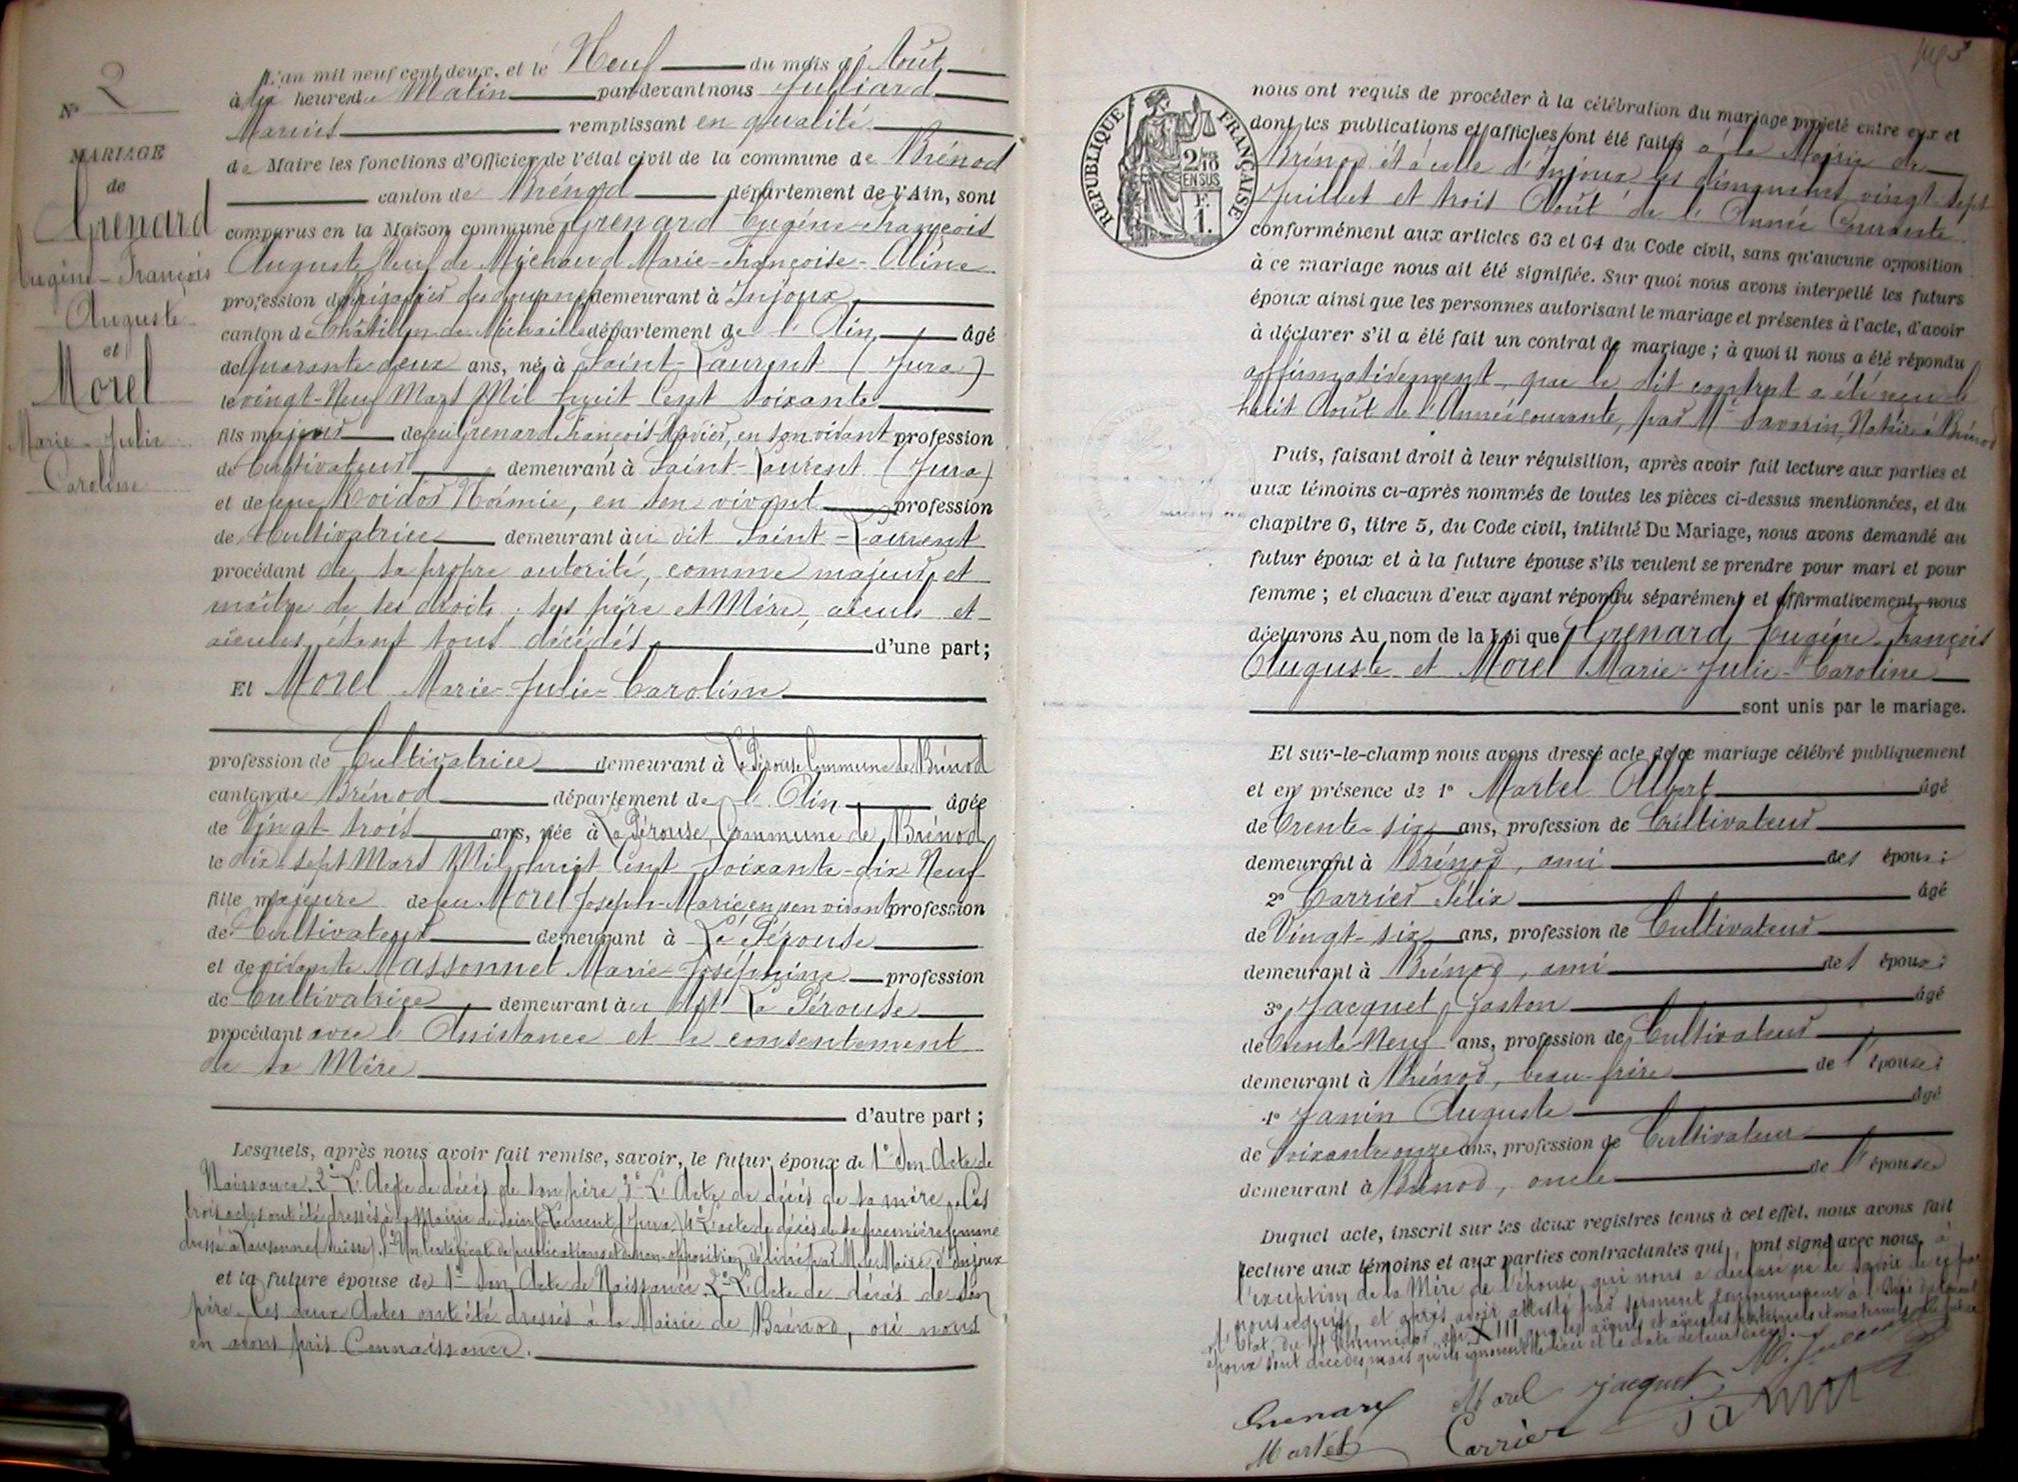 N° 2
MARIAGE
de
Grenard
Eugène-François
Auguste
et
Morel
Marie-Julie
Caroline
L'an mil neuf cent deux, et le Neuf du mois d'Août
à dix heures du Matin par-devant nous Julliard
Marius remplissant en qualité
de Maire les fonctions d'Officier de l'état civil de la commune de Brénod
canton de Brénod département de l'Ain, sont
comparus en la Maison commune Grenard Eugène-François
Auguste Veuf de Michaud Marie-Françoise-Aline
profession de Brigadier des douanes demeurant à Injoux
canton de Châtillon de Michaille département de l'Ain, âgé
de quarante deux ans, né à Saint-Laurent (Jura)
le vingt-Neuf Mars Mil huit Cent soixante
fils majeur de feu Grenard François-Xavier, en son vivant profession
de Cultivateur demeurant à Saint-Laurent (Jura)
et de feue Noémie, en son vivant profession
de Cultivatrice demeurant au dit Saint-Laurent
procédant de sa propre autorité, comme majeur et
maître de ses droits, ses père et Mère, aïeuls et
aïeules étant tous décédés d'une part;
Et Morel Marie-Julie-Caroline
profession de Cultivatrice demeurant à La Pérouse Commune de Brénod
canton de Brénod département de l'Ain âgée
de Vingt-trois ans, née à La Pérouse, Commune de Brénod
le dix-sept Mars Mil huit Cent soixante-dix Neuf
fille majeure de feu Morel Joseph-Marie en son vivant profession
de Cultivateur demeurant à La Pérouse
et de vivante Massonnet Marie-Joséphine profession
de Cultivatrice demeurant au dit La Pérouse
procédant avec l'Assistance et le consentement
de sa Mère
d'autre part;
Lesquels, après nous avoir fait remise, savoir, le futur époux de 1° Son Acte de
Naissance. 2° L'Acte de décès de son père 3° L'Acte de décès de sa mère. Ces
trois actes ont été dressés à la Mairie de Saint-Laurent (Jura) 4° L'acte de décès de sa première femme
dressé à Lausanne (Suisse). 5° Un Certificat de publications et de non-opposition, délivré par M. le Maire d'Injoux
et la future épouse de 1° Son Acte de Naissance 2° L'Acte de décès de son
père. Ces deux Actes ont été dressés à la Mairie de Brénod, où nous
en avons pris Connaissance.
nous ont requis de procéder à la célébration du mariage projeté entre eux et
RÉPUBLIQUE FRANÇAISE
2/10 EN SUS
F. 1.
dont les publications et affiches ont été faites à la Mairie de
Brénod et à celle d'Injoux les dimanches vingt-sept
Juillet et trois Août de l'Année Courante
conformément aux articles 63 et 64 du Code civil, sans qu'aucune opposition
à ce mariage nous ait été signifiée. Sur quoi nous avons interpellé les futurs
époux ainsi que les personnes autorisant le mariage et présentes à l'acte, d'avoir
à déclarer s'il a été fait un contrat de mariage; à quoi il nous a été répondu
affirmativement que le dit contrat a été reçu le
huit Août de l'Année courante, par Me Savarin, Notaire à Brénod
Puis, faisant droit à leur réquisition, après avoir fait lecture aux parties et
aux témoins ci-après nommés de toutes les pièces ci-dessus mentionnées, et du
chapitre 6, titre 5, du Code civil, intitulé Du Mariage, nous avons demandé au
futur époux et à la future épouse s'ils veulent se prendre pour mari et pour
femme; et chacun d'eux ayant répondu séparément et affirmativement, nous
déclarons Au nom de la Loi que Grenard Eugène-François
Auguste et Morel Marie-Julie-Caroline
sont unis par le mariage.
Et sur-le-champ nous avons dressé acte de ce mariage célébré publiquement
et en présence de 1° Martel Albert âgé
de Trente-six ans, profession de Cultivateur
demeurant à Brénod, ami des époux;
2° Carrier Félix âgé
de Vingt-six ans, profession de Cultivateur
demeurant à Brénod, ami des époux;
3° Jacquet Gaston âgé
de Trente-Neuf ans, profession de Cultivateur
demeurant à Brénod, beau-frère de l'épouse;
4° Janin Auguste âgé
de Soixante onze ans, profession de Cultivateur
demeurant à Brénod, oncle de l'épouse
Duquel acte, inscrit sur les deux registres tenus à cet effet, nous avons fait
lecture aux témoins et aux parties contractantes qui ont signé avec nous, à
l'exception de la Mère de l'épouse, qui nous a déclaré ne le savoir de ce faire
requise, et après avoir attesté par serment conformément à l'Avis du Conseil
d'Etat du XIII que les aïeuls et aïeules paternels et maternels du futur
époux sont décédés, mais qu'ils ignorent le lieu et la date de leur décès.
Grenard Morel Jacquet M. Julliard
Martel Carrier Janin